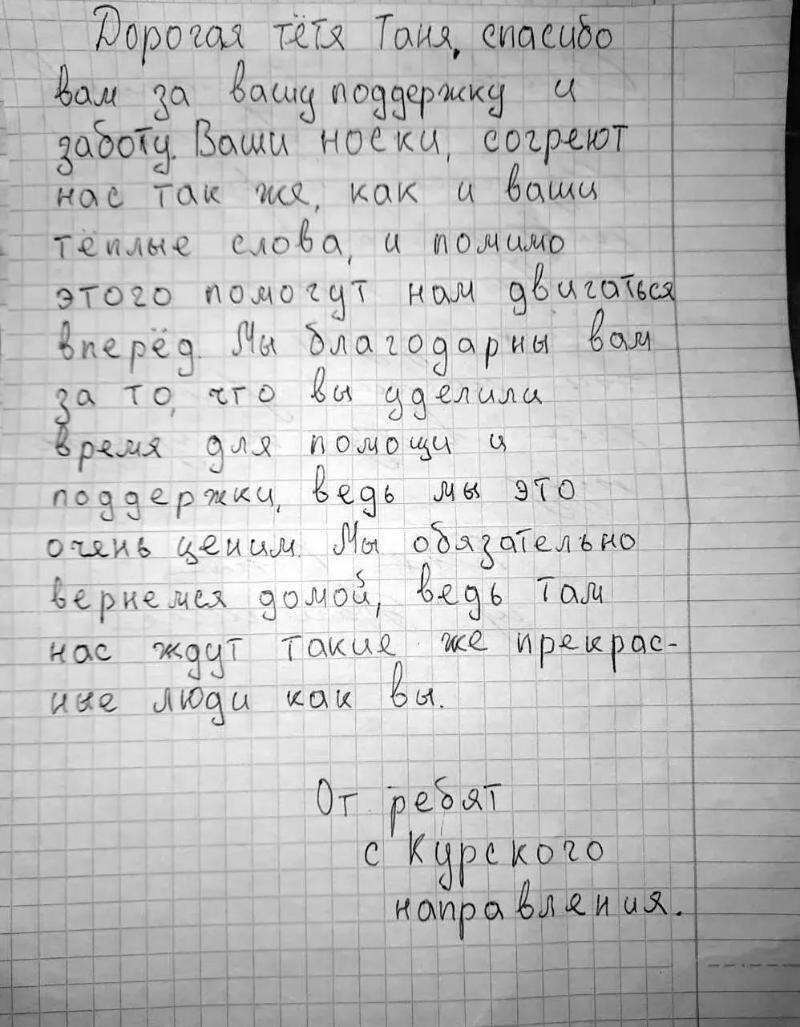 Дорогая тётя Таня, спасибо
вам за вашу поддержку и
заботу. Ваши носки, согреют
нас так же, как и ваши
тёплые слова, и помимо
этого помогут нам двигаться
вперёд. Мы благодарны вам
за то, что вы уделили
время для помощи и
поддержки, ведь мы это
очень ценим. Мы обязательно
вернемся домой, ведь там
нас ждут такие же прекрас-
ные люди как вы.
От ребят
с Курского
направления.